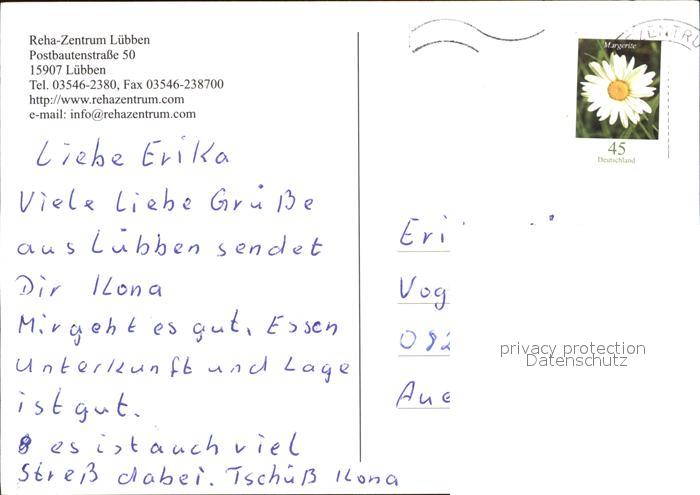 Reha-Zentrum Lübben
Postbautenstraße 50
15907 Lübben
Tel. 03546-2380, Fax 03546-238700
http://www.rehazentrum.com
e-mail: info@rehazentrum.com
Liebe Erika
Viele liebe Grüße
aus Lübben sendet
Dir Ilona
Mir geht es gut. Essen
Unterkunft und Lage
ist gut.
es ist auch viel
Streß dabei. Tschüß Ilona
ZENTRU
Margerite
45
Deutschland
Eri
Vog
082
Aue
privacy protection
Datenschutz